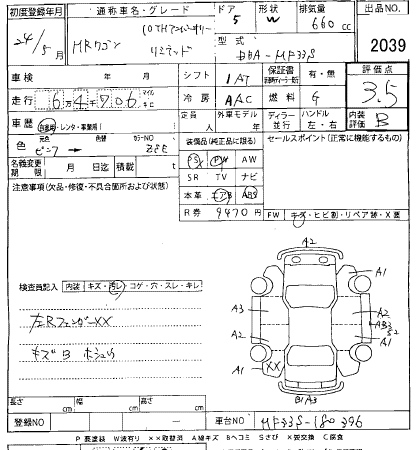 初度登録年月 通称車名・グレード ドア 形状 排気量 出品NO.
24/5月 MRワゴン 10THアニバーサリー リミテッド 5 W 660cc 2039
型式 DBA-MF33S
車検 年 月 シフト IAT 保証書 有・無 評価点
走行 6万4千706 マイル キロ 冷房 AAC 燃料 G 3.5
車歴 自家用・レンタ・事業用 定員 人 外車モデル 年 ディーラー 並行 ハンドル 左・右 内装評価 B
色 ピンク → 色替 カラーNO 装備品(純正品に限る) セールスポイント(正常に機能するもの)
名義変更期限 月 日 積載 t PS PW AW
注意事項(欠品・修復・不具合箇所および状態) SR TV ナビ
本革 エアB ABS
R券 9470円 FW キズ・ヒビ割・リペア跡・X要
検査員記入 内装 キズ・汚レ・コゲ・穴・スレ・キレ
左Rフェンダーxx
キズB ホシュウ
A2
A1
A3 A2
A2 A1
A1 XX
B1A3
長さ cm 幅 cm 高さ cm
登録NO 車台NO MF33S-180396
P要塗装 W波有り ××取替済 A線キズ Bヘコミ Sさび X要交換 C腐食